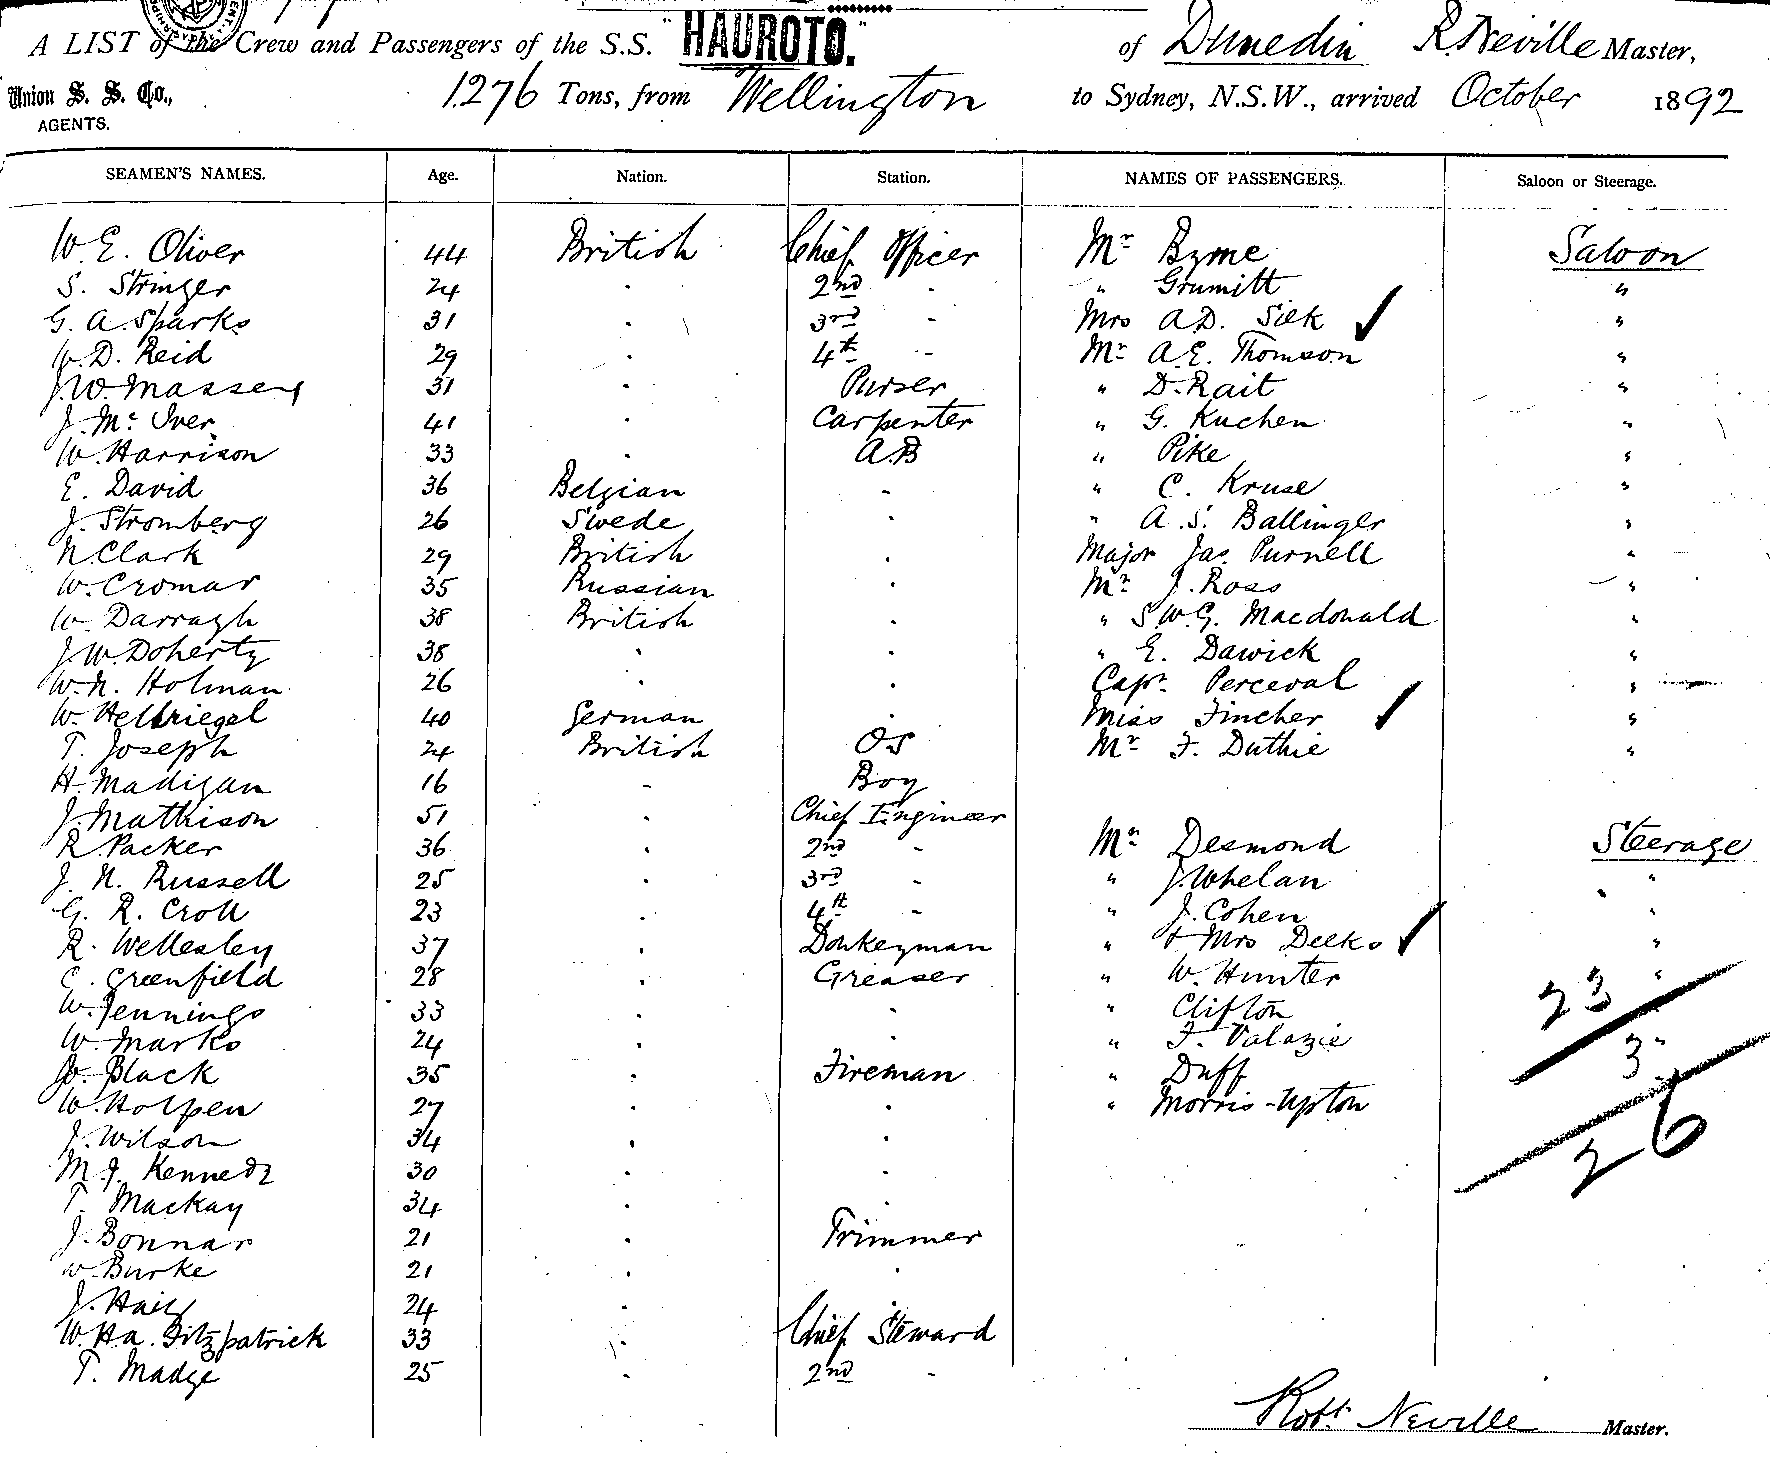 A LIST of the Crew and Passengers of the S.S. "HAUROTO." of Dunedin R Neville Master,
Union S. S. Co., 1276 Tons, from Wellington to Sydney, N.S.W., arrived October 1892
AGENTS.
SEAMEN'S NAMES. Age. Nation. Station. NAMES OF PASSENGERS. Saloon or Steerage.
W. E. Oliver 44 British Chief Officer Mr Byrne Saloon
S. Stringer 24 " 2nd " " Grumitt "
G. A. Sparks 31 " 3rd " Mrs A.D. Silk "
W. D. Reid 29 " 4th " Mr A.E. Thomson "
J. W. Massey 31 " Purser " D. Rait "
J. Mc Iver 41 " Carpenter " G. Kuchen "
W. Harrison 33 " A.B " Pike "
E. David 36 Belgian " " C. Kruse "
J. Stromberg 26 Swede " " A. S. Ballinger "
N. Clark 29 British " Major Jas. Purnell "
W. Cromar 35 Russian " Mr J. Ross "
W. Darragh 38 British " " S.W.G. Macdonald "
J. W. Doherty 38 " " " E. Dawick "
W. N. Holman 26 " " Capn. Perceval "
W. Hellriegel 40 German " Miss Fincher "
T. Joseph 24 British OS Mr F. Duthie "
H. Madigan 16 " Boy
J. Mathison 51 " Chief Engineer
R. Packer 36 " 2nd " Mr Desmond Steerage
J. N. Russell 25 " 3rd " " J. Whelan "
G. R. Croll 23 " 4th " " J. Cohen "
R. Wellesley 37 " Donkeyman " + Mrs Deeks "
C. Greenfield 28 " Greaser " W. Hunter "
W. Jennings 33 " " " Clifton 23
W. Marks 24 " " " F. Valazie 3
W. Black 35 " Fireman " Duff
W. Holpen 27 " " " Morris-Upton
J. Wilson 34 " " 26
M. J. Kennedy 30 " "
T. Mackay 34 " "
J. Bonnar 21 " Trimmer
W. Burke 21 " "
J. Haig 24 "
W. Ha. Fitzpatrick 33 Chief Steward
T. Madge 25 " 2nd "
Robt. Neville Master.